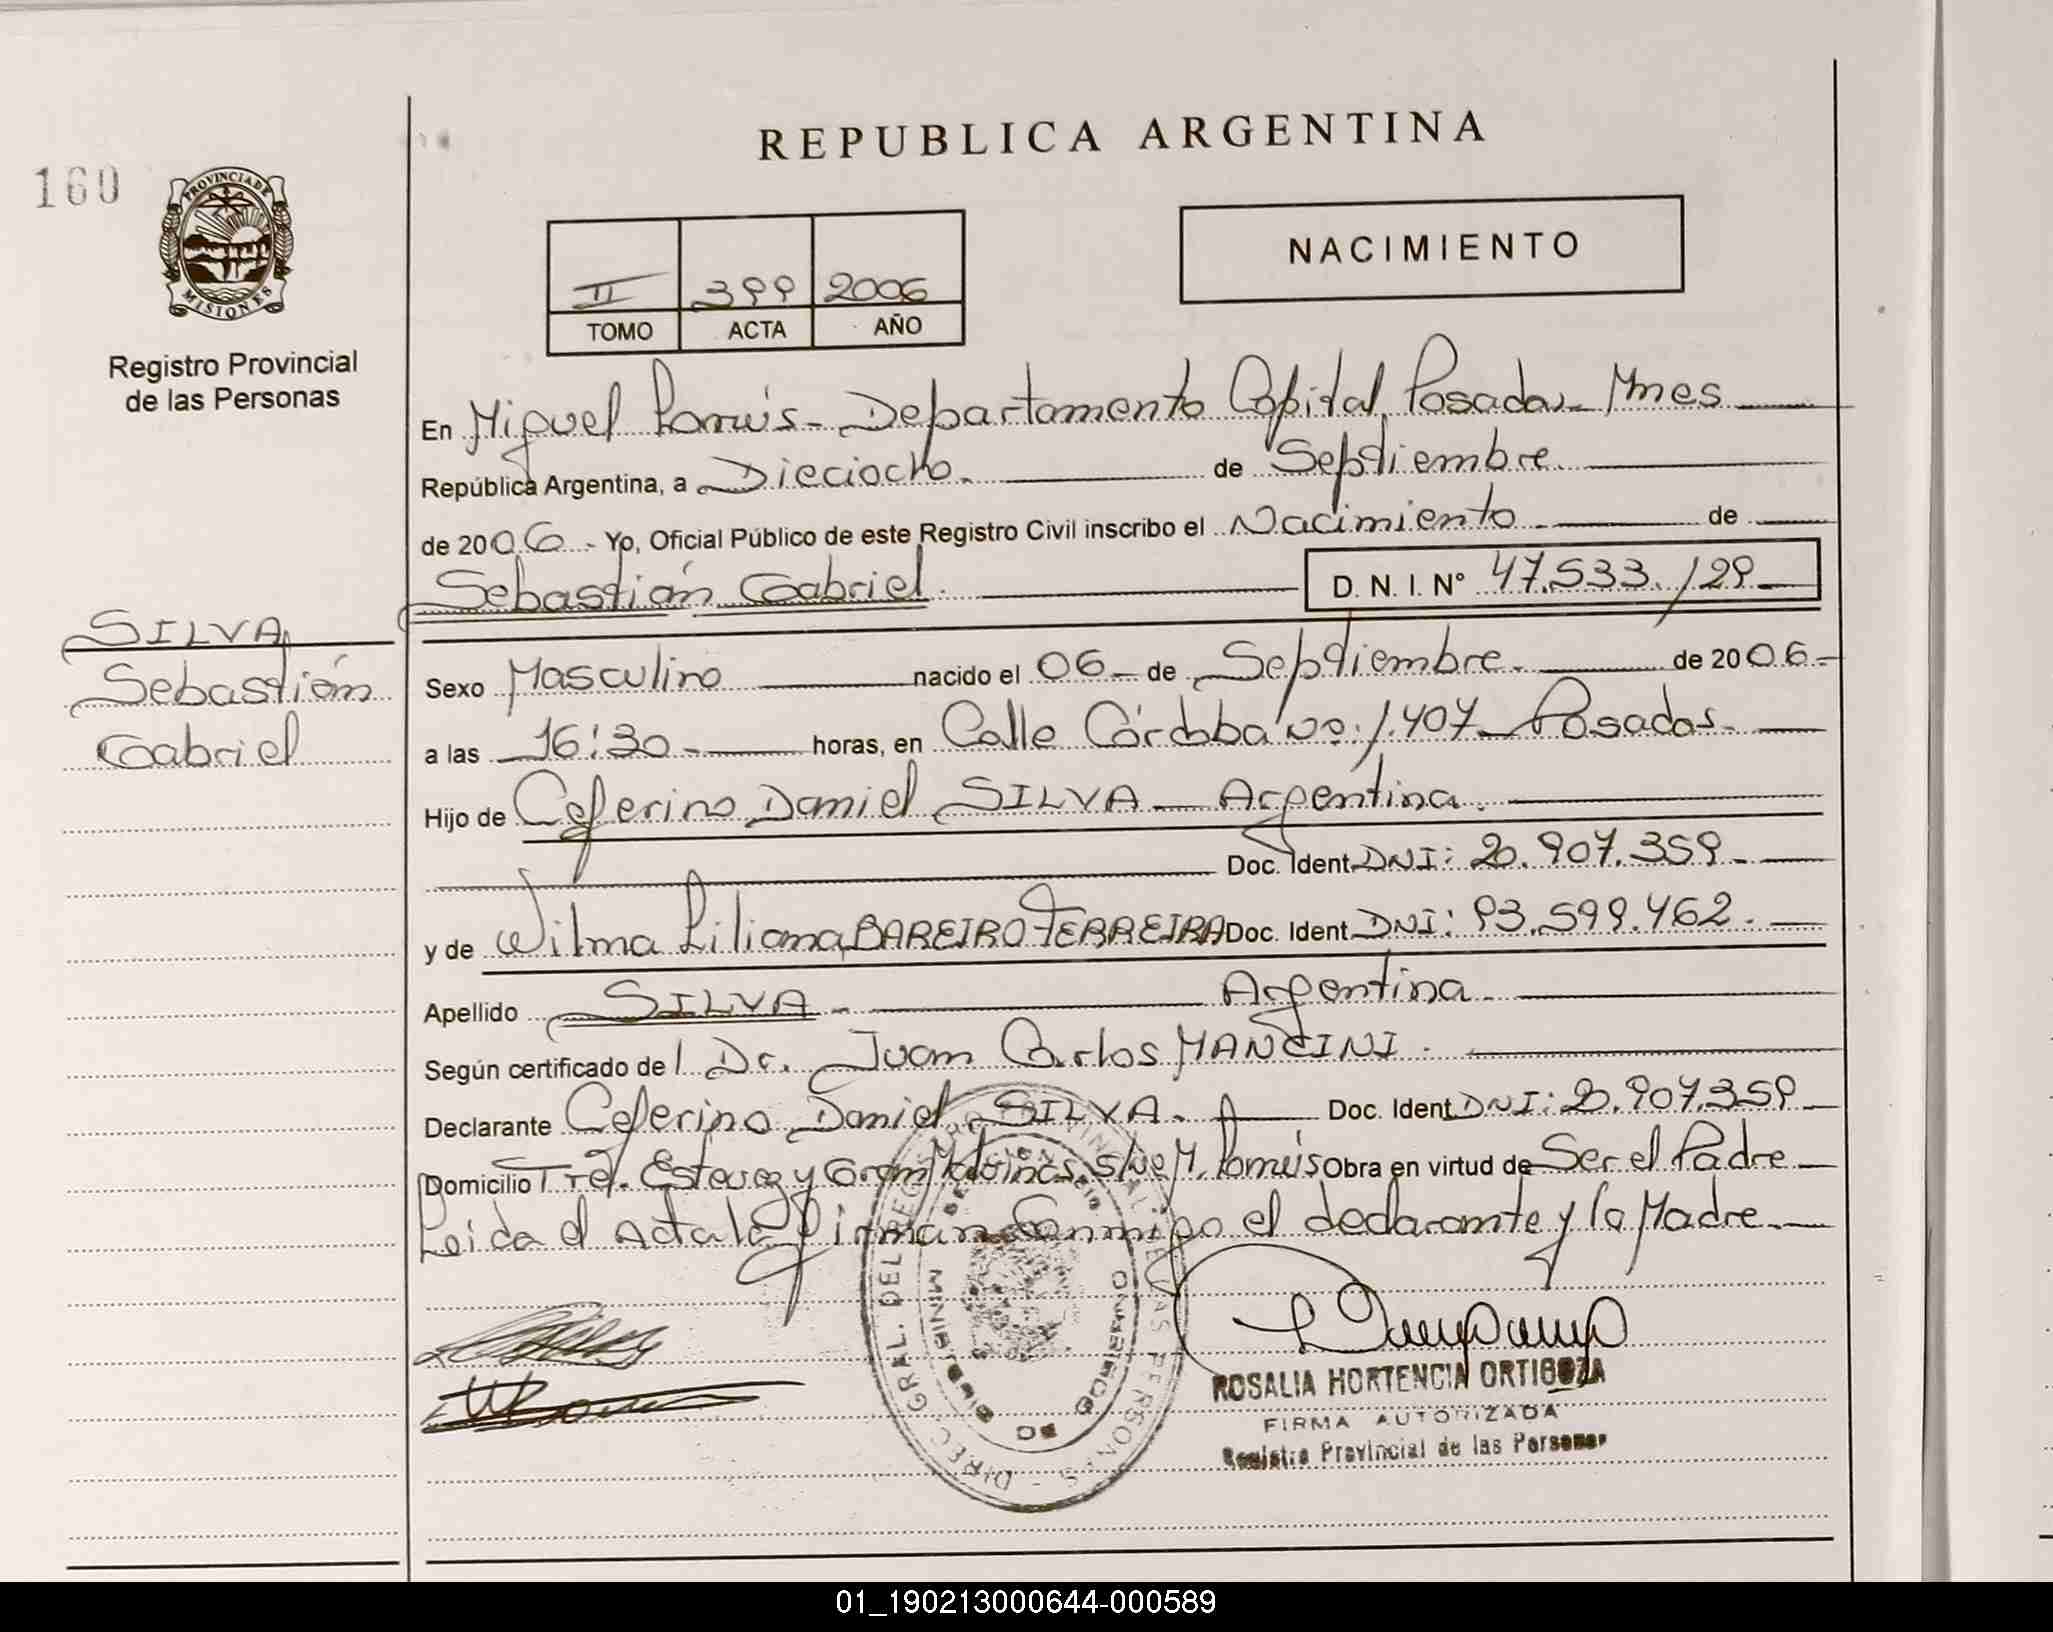 160
PROVINCIA DE
MISIONES
Registro Provincial
de las Personas
REPUBLICA ARGENTINA
NACIMIENTO
II 399 2006
TOMO ACTA AÑO
En Miguel Lanús - Departamento Capital, Posadas - Mnes
República Argentina, a Dieciocho. de Septiembre
de 2006 - Yo, Oficial Público de este Registro Civil inscribo el Nacimiento de
Sebastián Gabriel. D. N. I. N° 47.533.129
SILVA
Sebastián
Gabriel
Sexo Masculino nacido el 06 - de Septiembre. de 2006 -
a las 16:30 - horas, en Calle Córdoba Nº 1.407 - Posadas -
Hijo de Ceferino Daniel SILVA - Argentina.
Doc. Ident DNI: 20.907.359 -
y de Wilma Liliana BAREIRO FERREIRA Doc. Ident DNI: 93.599.462. -
Apellido SILVA - Argentina -
Según certificado del Dr. Juan Carlos MANCINI.
Declarante Ceferino Daniel SILVA. Doc. Ident DNI: 20.907.359 -
Domicilio Estevez y Gram Malvinas, S/Nº M. Lanús Obra en virtud de Ser el Padre
Leida el Acta la firman Conmigo el declarante y la Madre -
DIREC. GRAL. DEL REGISTRO PROVINCIAL DE LAS PERSONAS
ROSALIA HORTENCIA ORTIGOZA
FIRMA AUTORIZADA
Registro Provincial de las Personas
01_190213000644-000589